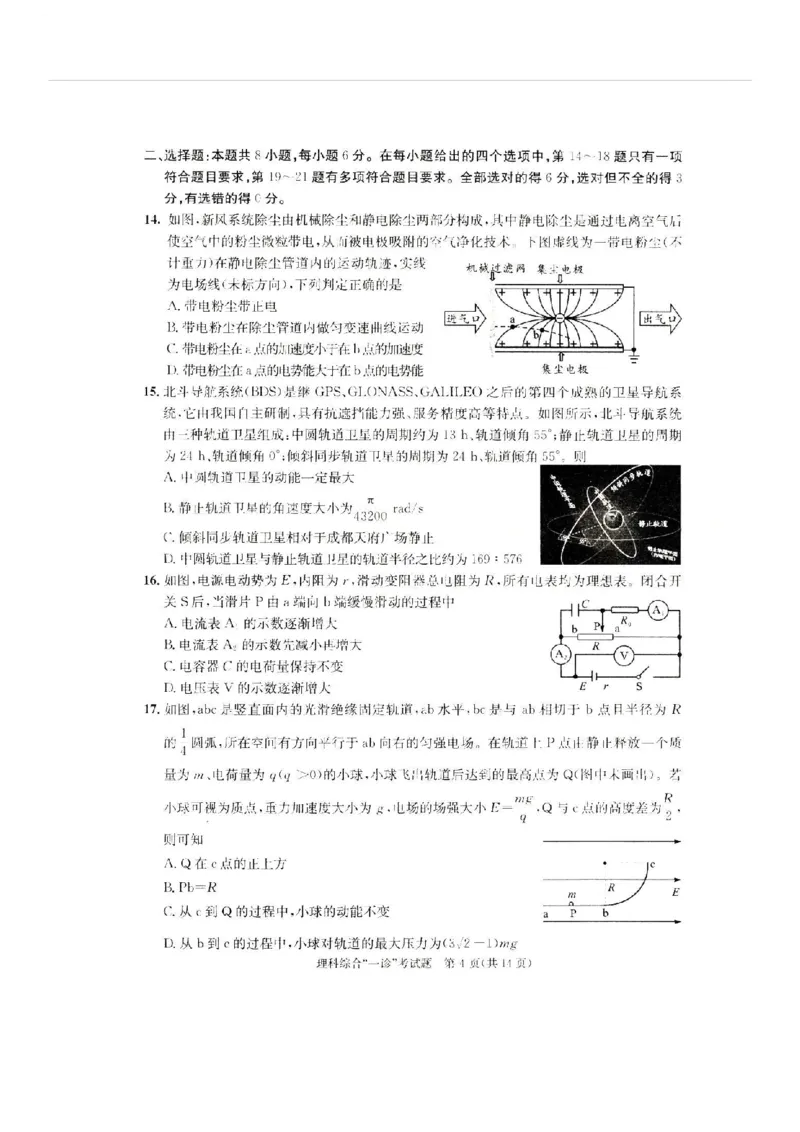 二、选择题:本题共 8 小题,每小题 6 分。在每小题给出的四个选项中,第 14～18 题只有一项
符合题目要求,第 19～21 题有多项符合题目要求。全部选对的得 6 分,选对但不全的得 3
分,有选错的得 0 分。
14. 如图,新风系统除尘由机械除尘和静电除尘两部分构成,其中静电除尘是通过电离空气后
使空气中的粉尘微粒带电,从而被电极吸附的空气净化技术。下图虚线为一带电粉尘(不
计重力)在静电除尘管道内的运动轨迹,实线
为电场线(未标方向),下列判定正确的是
A. 带电粉尘带正电
B. 带电粉尘在除尘管道内做匀变速曲线运动
C. 带电粉尘在 a 点的加速度小于在 b 点的加速度
D. 带电粉尘在 a 点的电势能大于在 b 点的电势能
机械过滤网 集尘电极
进气口
a
b
出气口
集尘电极
15. 北斗导航系统(BDS)是继 GPS、GLONASS、GALILEO 之后的第四个成熟的卫星导航系
统,它由我国自主研制,具有抗遮挡能力强、服务精度高等特点。如图所示,北斗导航系统
由三种轨道卫星组成:中圆轨道卫星的周期约为 13 h、轨道倾角 55°;静止轨道卫星的周期
为 24 h、轨道倾角 0°;倾斜同步轨道卫星的周期为 24 h、轨道倾角 55°。则
A. 中圆轨道卫星的动能一定最大
B. 静止轨道卫星的角速度大小为 π/43200 rad/s
C. 倾斜同步轨道卫星相对于成都天府广场静止
D. 中圆轨道卫星与静止轨道卫星的轨道半径之比约为 169∶576
倾斜同步轨道
静止轨道
16. 如图,电源电动势为 E,内阻为 r,滑动变阻器总电阻为 R,所有电表均为理想表。闭合开
关 S 后,当滑片 P 由 a 端向 b 端缓慢滑动的过程中
A. 电流表 A₁ 的示数逐渐增大
B. 电流表 A₂ 的示数先减小再增大
C. 电容器 C 的电荷量保持不变
D. 电压表 V 的示数逐渐增大
C A₁
b P a R₀
R
A₂ V
E r S
17. 如图,abc 是竖直面内的光滑绝缘固定轨道,ab 水平,bc 是与 ab 相切于 b 点且半径为 R
的 1/4 圆弧,所在空间有方向平行于 ab 向右的匀强电场。在轨道上 P 点由静止释放一个质
量为 m、电荷量为 q(q＞0)的小球,小球飞出轨道后达到的最高点为 Q(图中未画出)。若
小球可视为质点,重力加速度大小为 g,电场的场强大小 E=mg/q,Q 与 c 点的高度差为 R/2,
则可知
A. Q 在 c 点的正上方
B. Pb=R
C. 从 c 到 Q 的过程中,小球的动能不变
D. 从 b 到 c 的过程中,小球对轨道的最大压力为(3√2−1)mg
c
R E
m
a P b
理科综合“一诊”考试题 第 4 页(共 14 页)